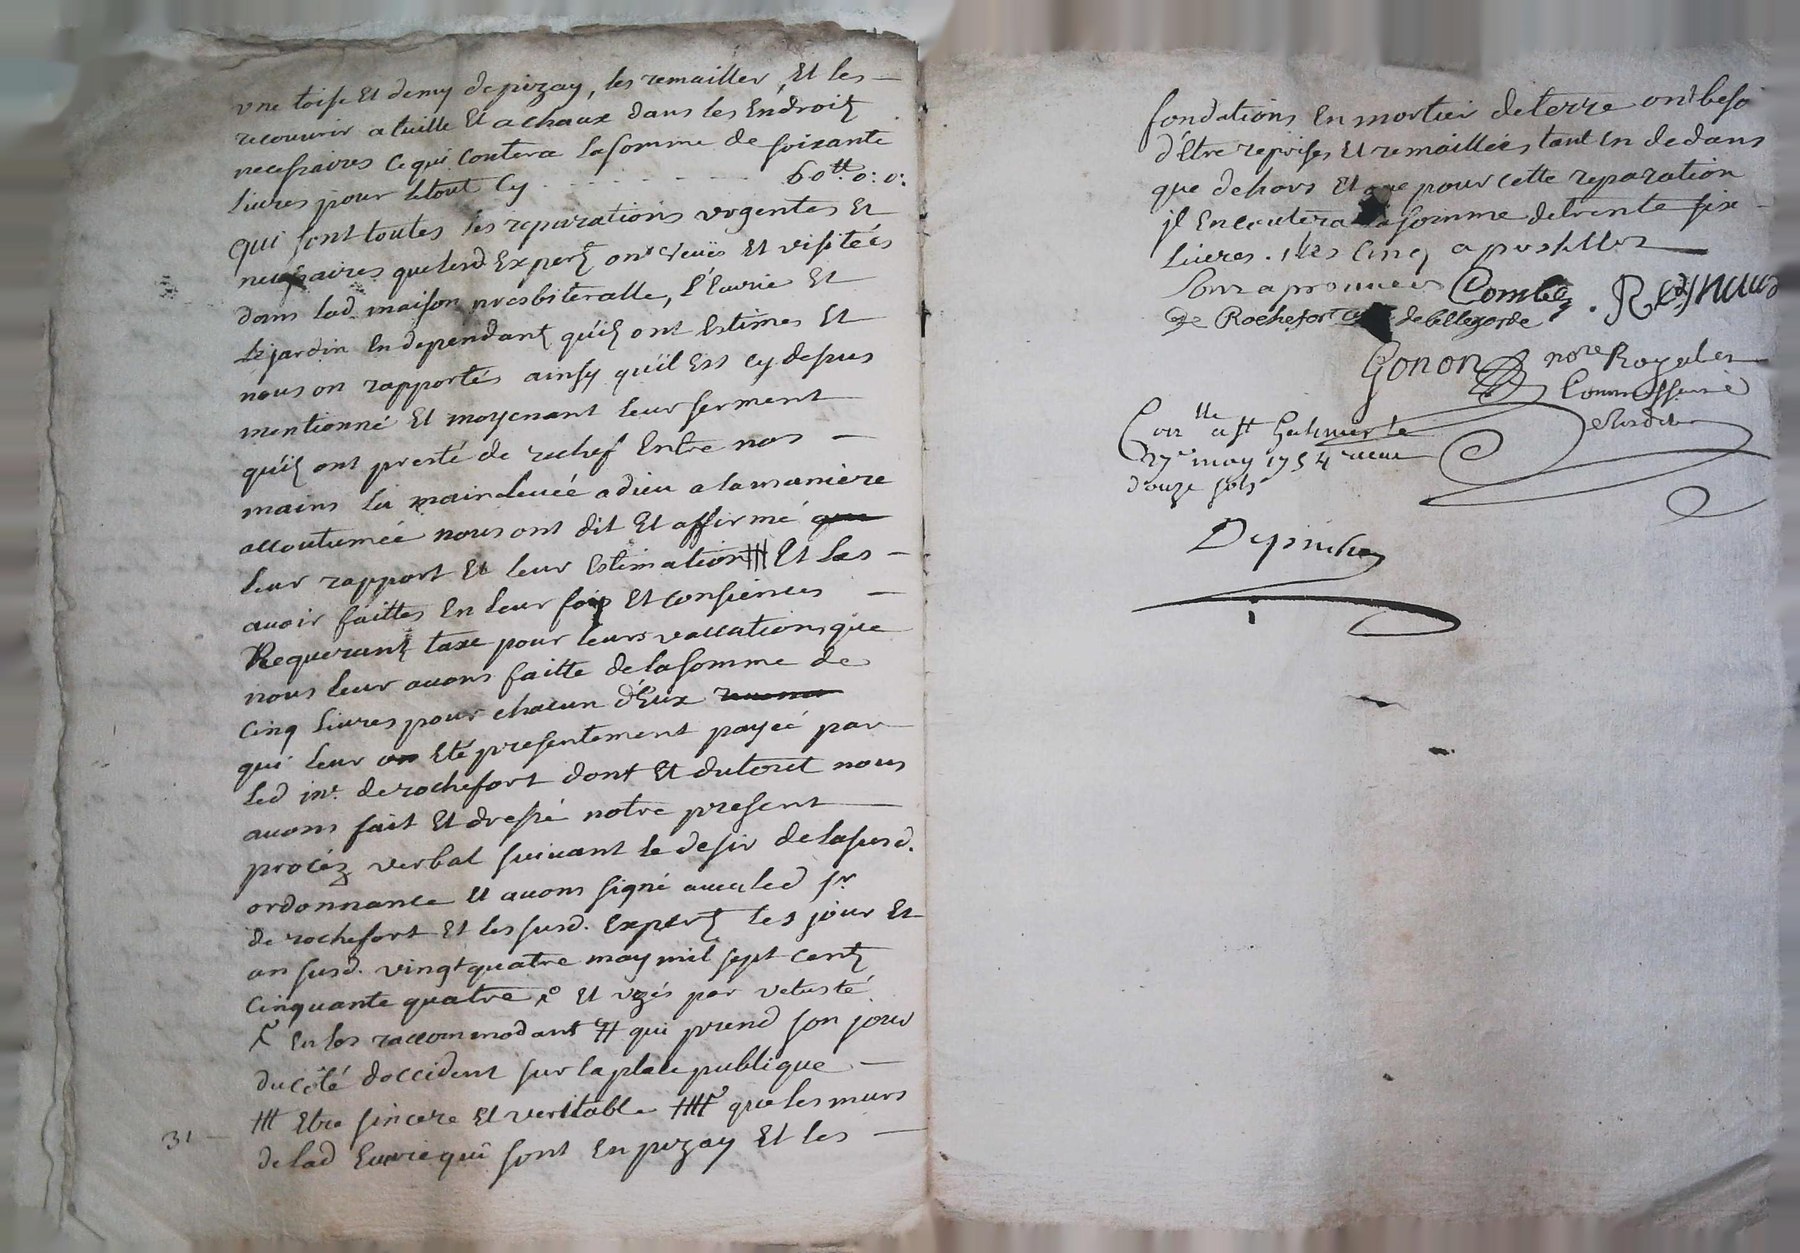 une toise Et demy de pizay, les remailler, Et les —
recouvrir a tuille Et a chaux dans les Endroitz
necessaires ce qui coutera la somme de soixante
livres pour letout Cy - - - - - 60tt. 0: 0:
qui sont toutes les reparations urgentes Et
necessaires que lesd Expertz ont veues Et visitées
dans lad. maison presbiteralle, l'Ecurie Et
le jardin En dependantz qu'ilz ont Estimés Et
nous on rapportés ainsy qu'il Est cy depus
mentionné Et moyenant leur serment
qu'ilz ont presté de rechef Entre nos —
mains la main levée a dieu a la manière
accoutumée nous ont dit Et affirmé que
leur rapport Et leur Estimation ⧻ Et Les —
avoir faittes En leur foy Et consiences —
Requerantz taxe pour leurs vaccations que
nous leur avons faitte de la somme de
cinq livres pour chacun d'Eux
qui leur on Eté presentement payeé par
led sr. de rochefort dont Et dutout nous
avons fait Et dressé notre present —
procéz verbal suivant le desir de la susd.
ordonnance Et avons signé avec led sr
de rochefort Et les susd. Expertz les jour Et
an susd. vingt quatre may mil sept centz
cinquante quatre Et uzés par vetusté
En les raccommodant qui prend son jour
du côté doccident sur la place publique —
⧻ Etre sincere Et veritable que les murs
31 — de lad Ecurie qui sont En pizay Et les —
fondations En mortier de terre ont beso
d'être reprises Et remaillées tant En dedans
que dehors Et que pour cette reparation
jl En coutera la somme de trente six —
livres. les cinq apostilles
sont aprouveés Combe . Reynaud
de Rochefort curé de bellegarde
Gonon nore Royal et
Commissaire
Conlle a st Galmier le
27e may 1754 receu
douze sols